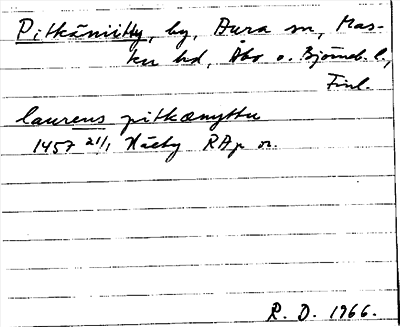 Pitkäniitty, by, Aura sn, Mas-
ku hd, Åbo o. Björneb. l.,
Finl.
laurens pitkænyttu
1457 21/1 Nääby RAp or.
R. D. 1966.